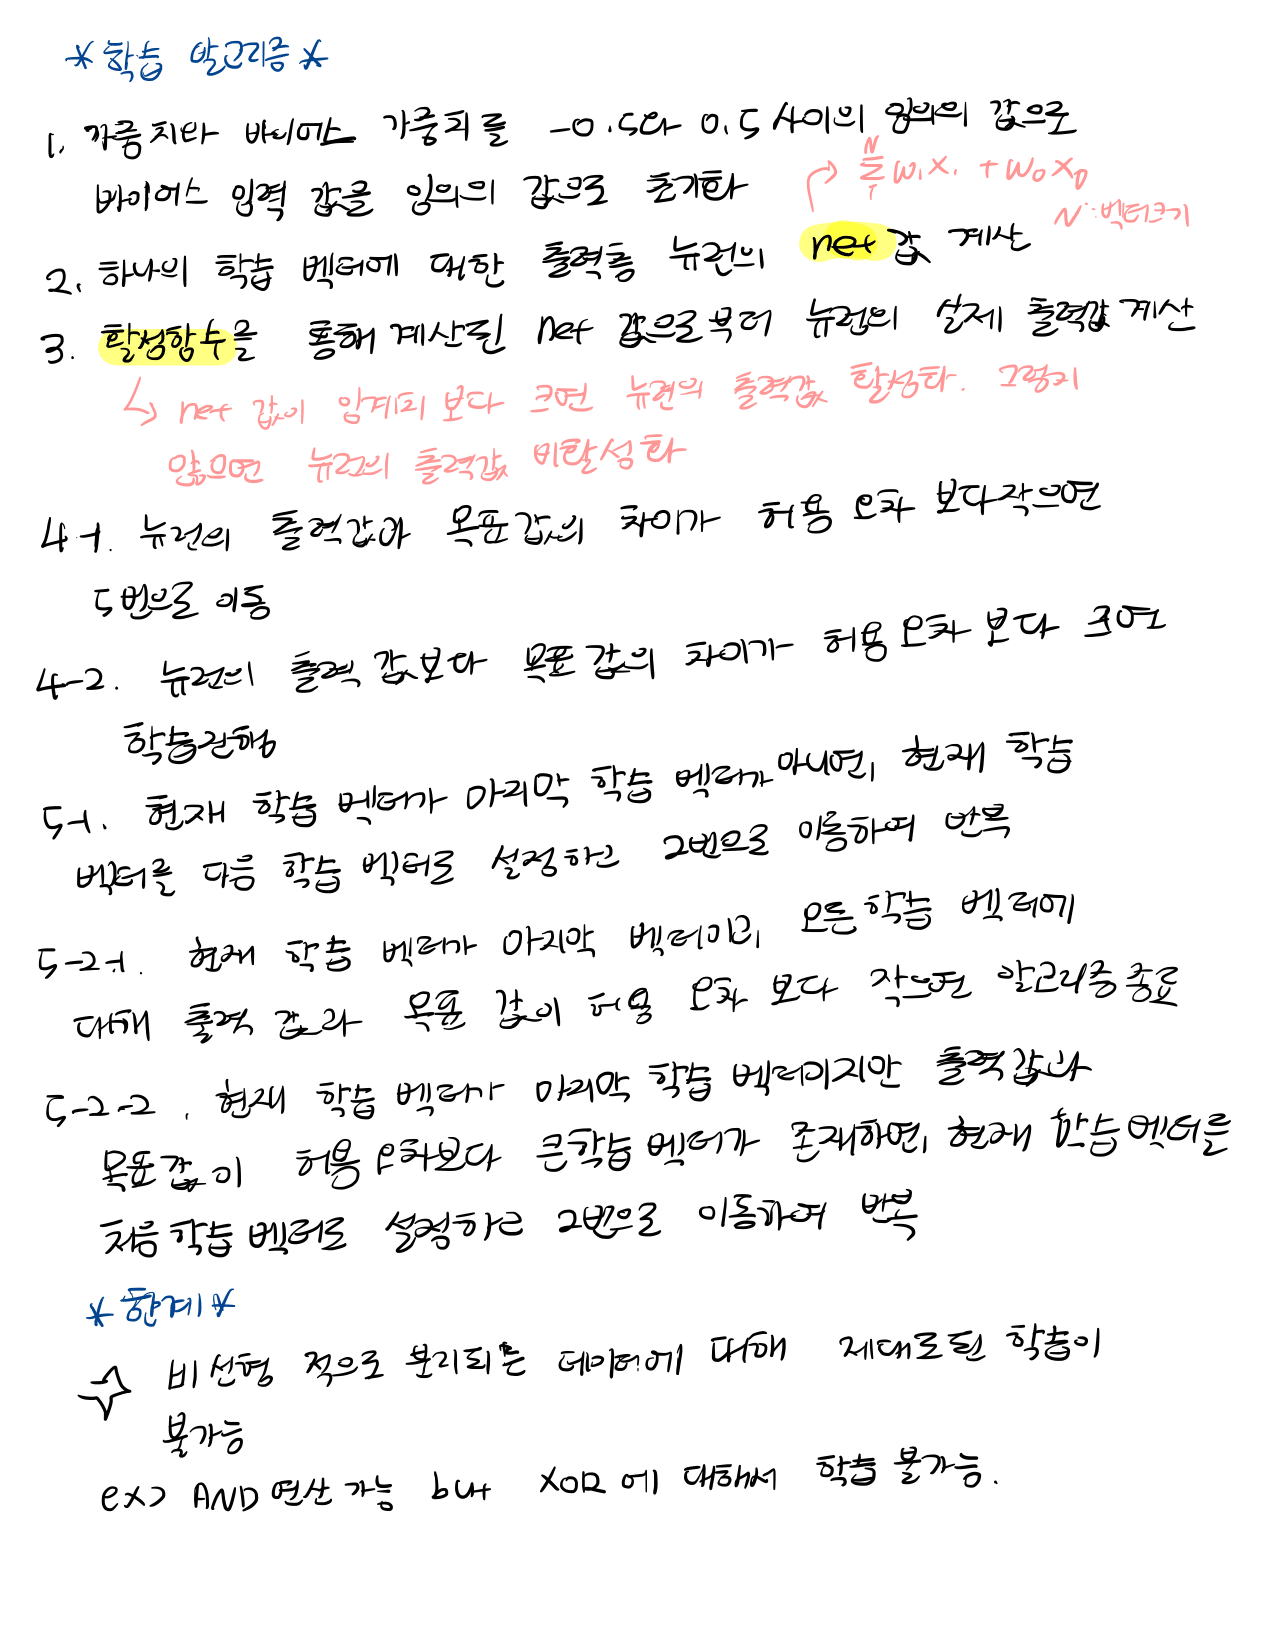 *학습 알고리즘*
1. 가중치와 바이어스 가중치를 -0.5와 0.5 사이의 임의의 값으로
바이어스 입력 값을 임의의 값으로 초기화
N
Σ WiXi + WoXo
i
N : 벡터크기
2. 하나의 학습 벡터에 대한 출력층 뉴런의 net 값 계산
3. 활성함수를 통해 계산된 net 값으로부터 뉴런의 실제 출력값 계산
↳ net 값이 임계치 보다 크면 뉴런의 출력값 활성화. 그렇지
않으면 뉴런의 출력값 비활성화
4-1. 뉴런의 출력값과 목표값의 차이가 허용 오차 보다 작으면
5번으로 이동
4-2. 뉴런의 출력 값보다 목표 값의 차이가 허용 오차 보다 크면
학습진행
5-1. 현재 학습 벡터가 마지막 학습 벡터가 아니면, 현재 학습
벡터를 다음 학습 벡터로 설정하고 2번으로 이동하여 반복
5-2-1. 현재 학습 벡터가 마지막 벡터이고, 모든 학습 벡터에
대해 출력 값과 목표 값이 허용 오차 보다 작으면 알고리즘 종료
5-2-2. 현재 학습 벡터가 마지막 학습 벡터이지만 출력값과
목표값이 허용오차보다 큰 학습 벡터가 존재하면, 현재 학습 벡터를
처음 학습 벡터로 설정하고 2번으로 이동하여 반복
*한계*
비선형 적으로 분리되는 데이터에 대해 제대로된 학습이
불가능
ex> AND 연산 가능 but XOR 에 대해서 학습 불가능.